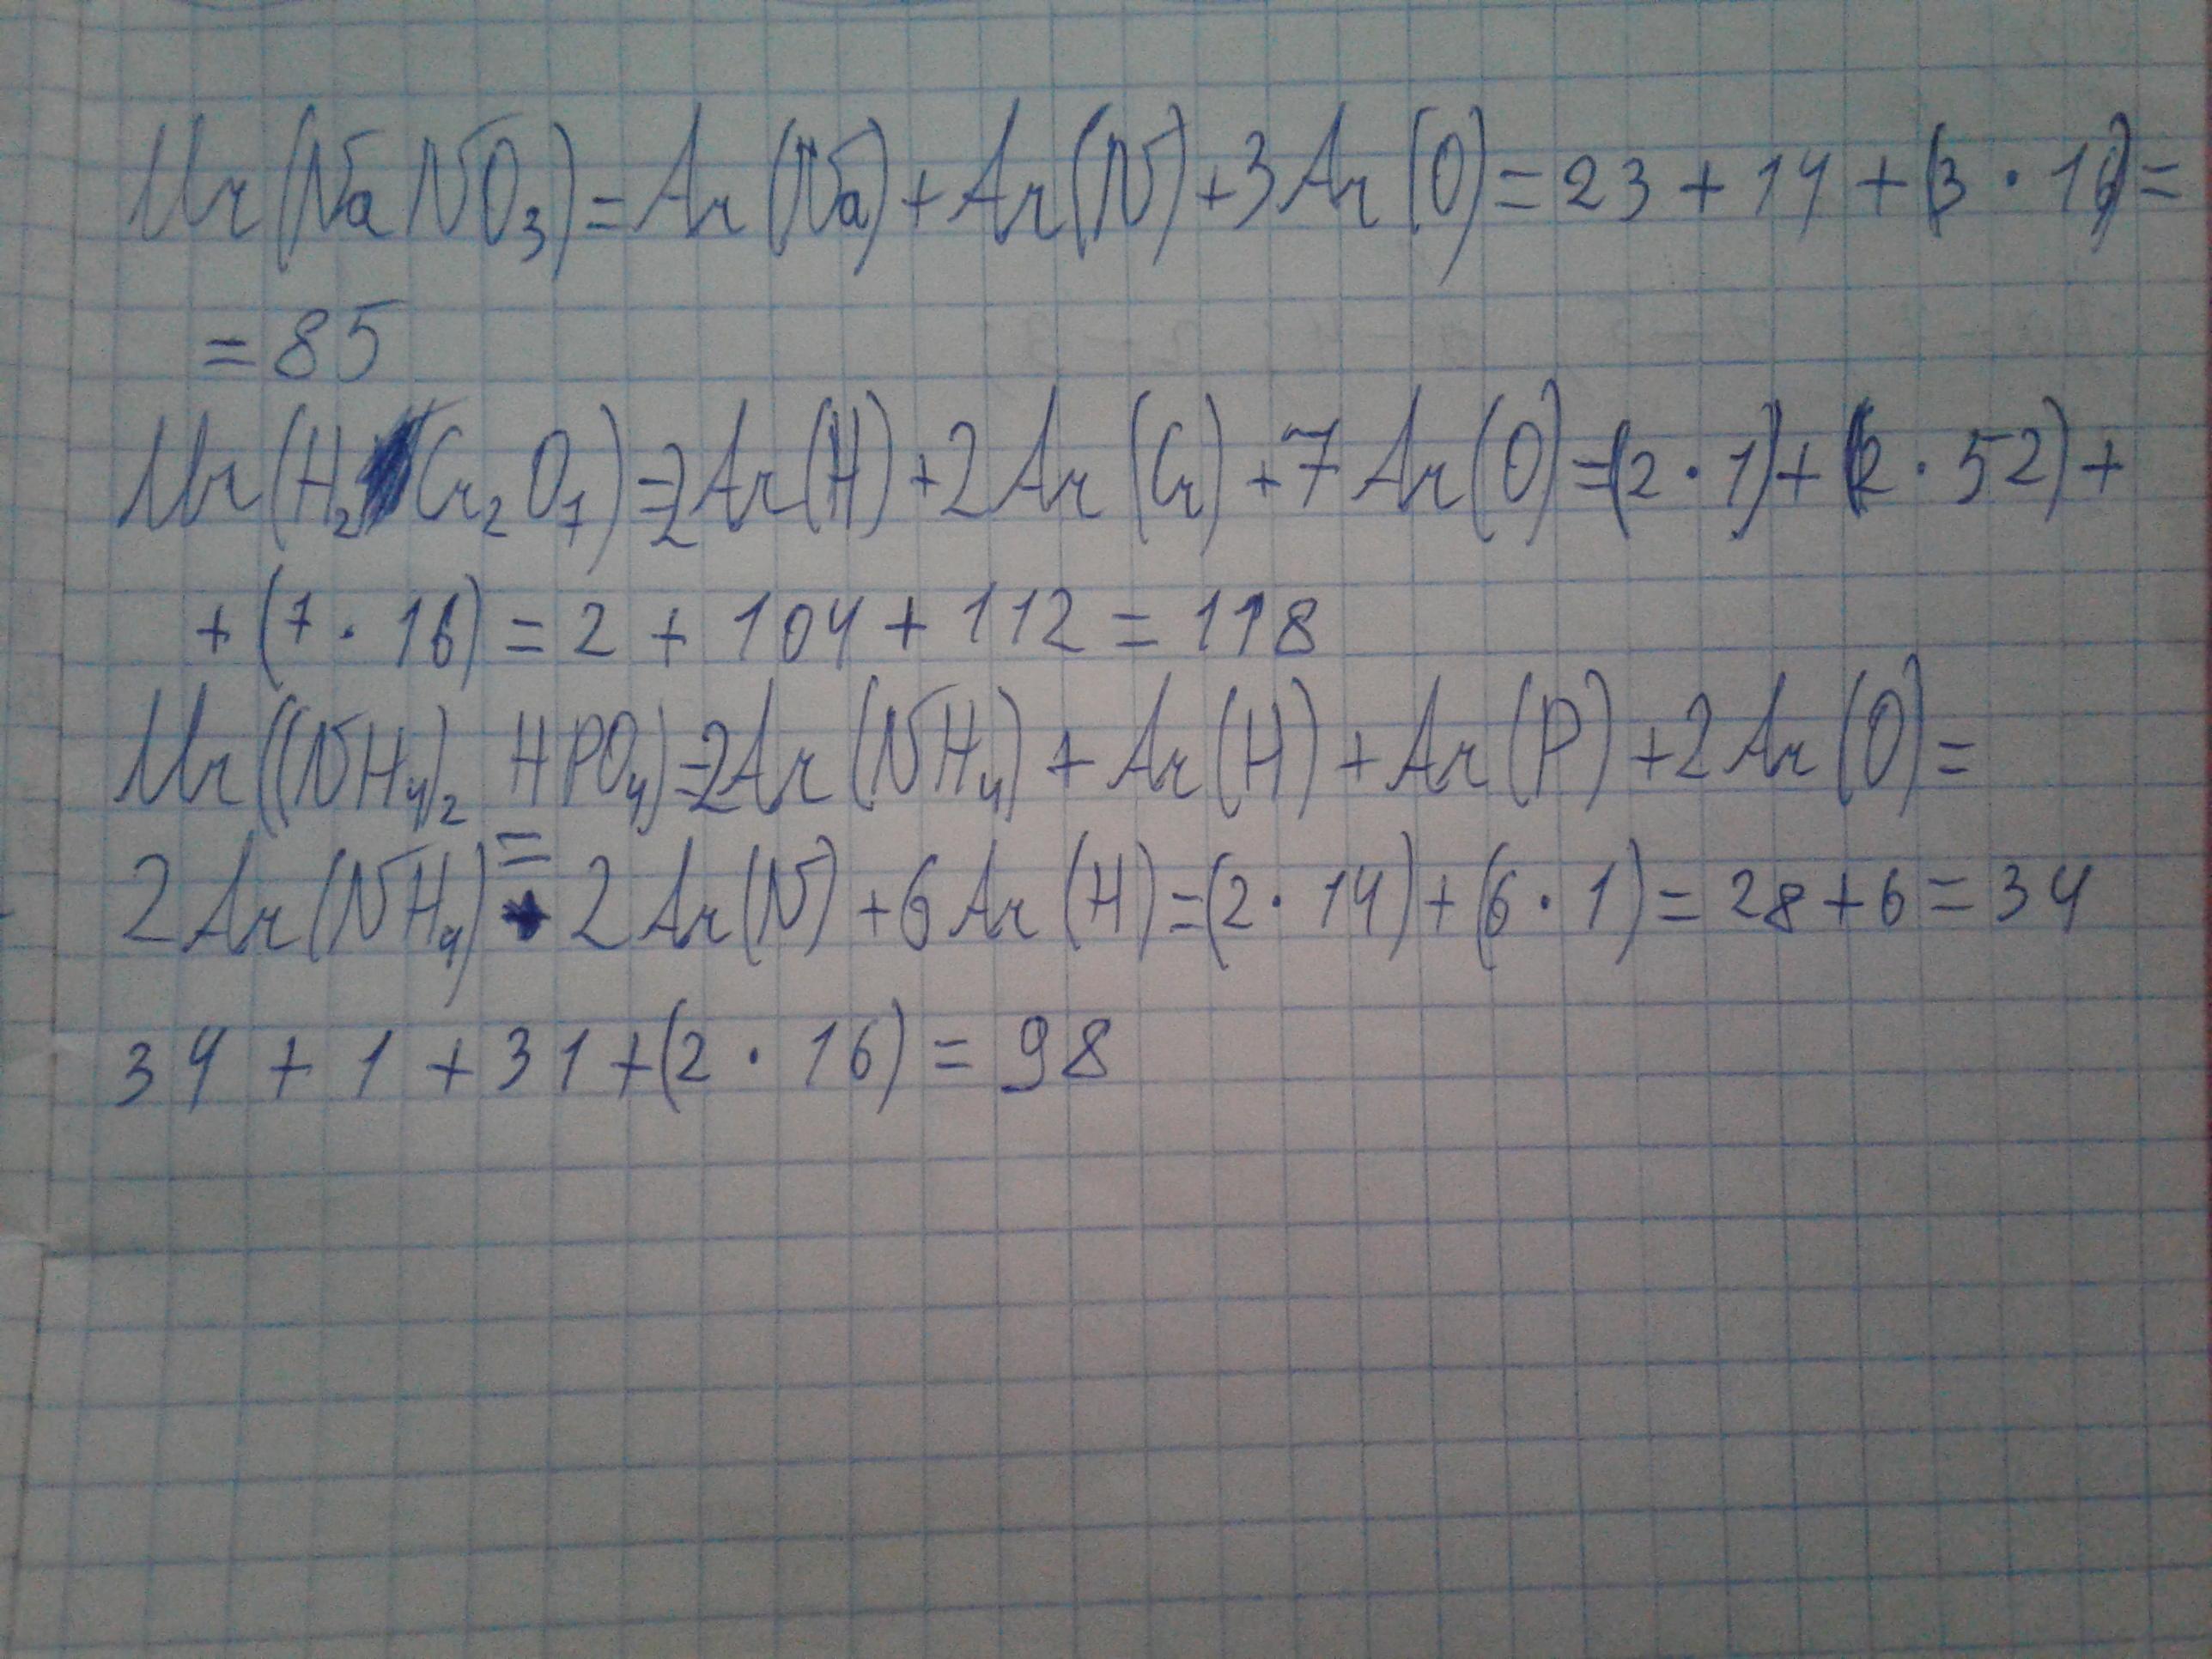 Mr(NaNO₃)=Ar(Na)+Ar(N)+3Ar(O)=23+14+(3·16)=
=85
Mr(H₂Cr₂O₇)=2Ar(H)+2Ar(Cr)+7Ar(O)=(2·1)+(2·52)+
+(7·16)=2+104+112=118
Mr((NH₄)₂HPO₄)=2Ar(NH₄)+Ar(H)+Ar(P)+2Ar(O)=
2Ar(NH₄)=2Ar(N)+6Ar(H)=(2·14)+(6·1)=28+6=34
34+1+31+(2·16)=98